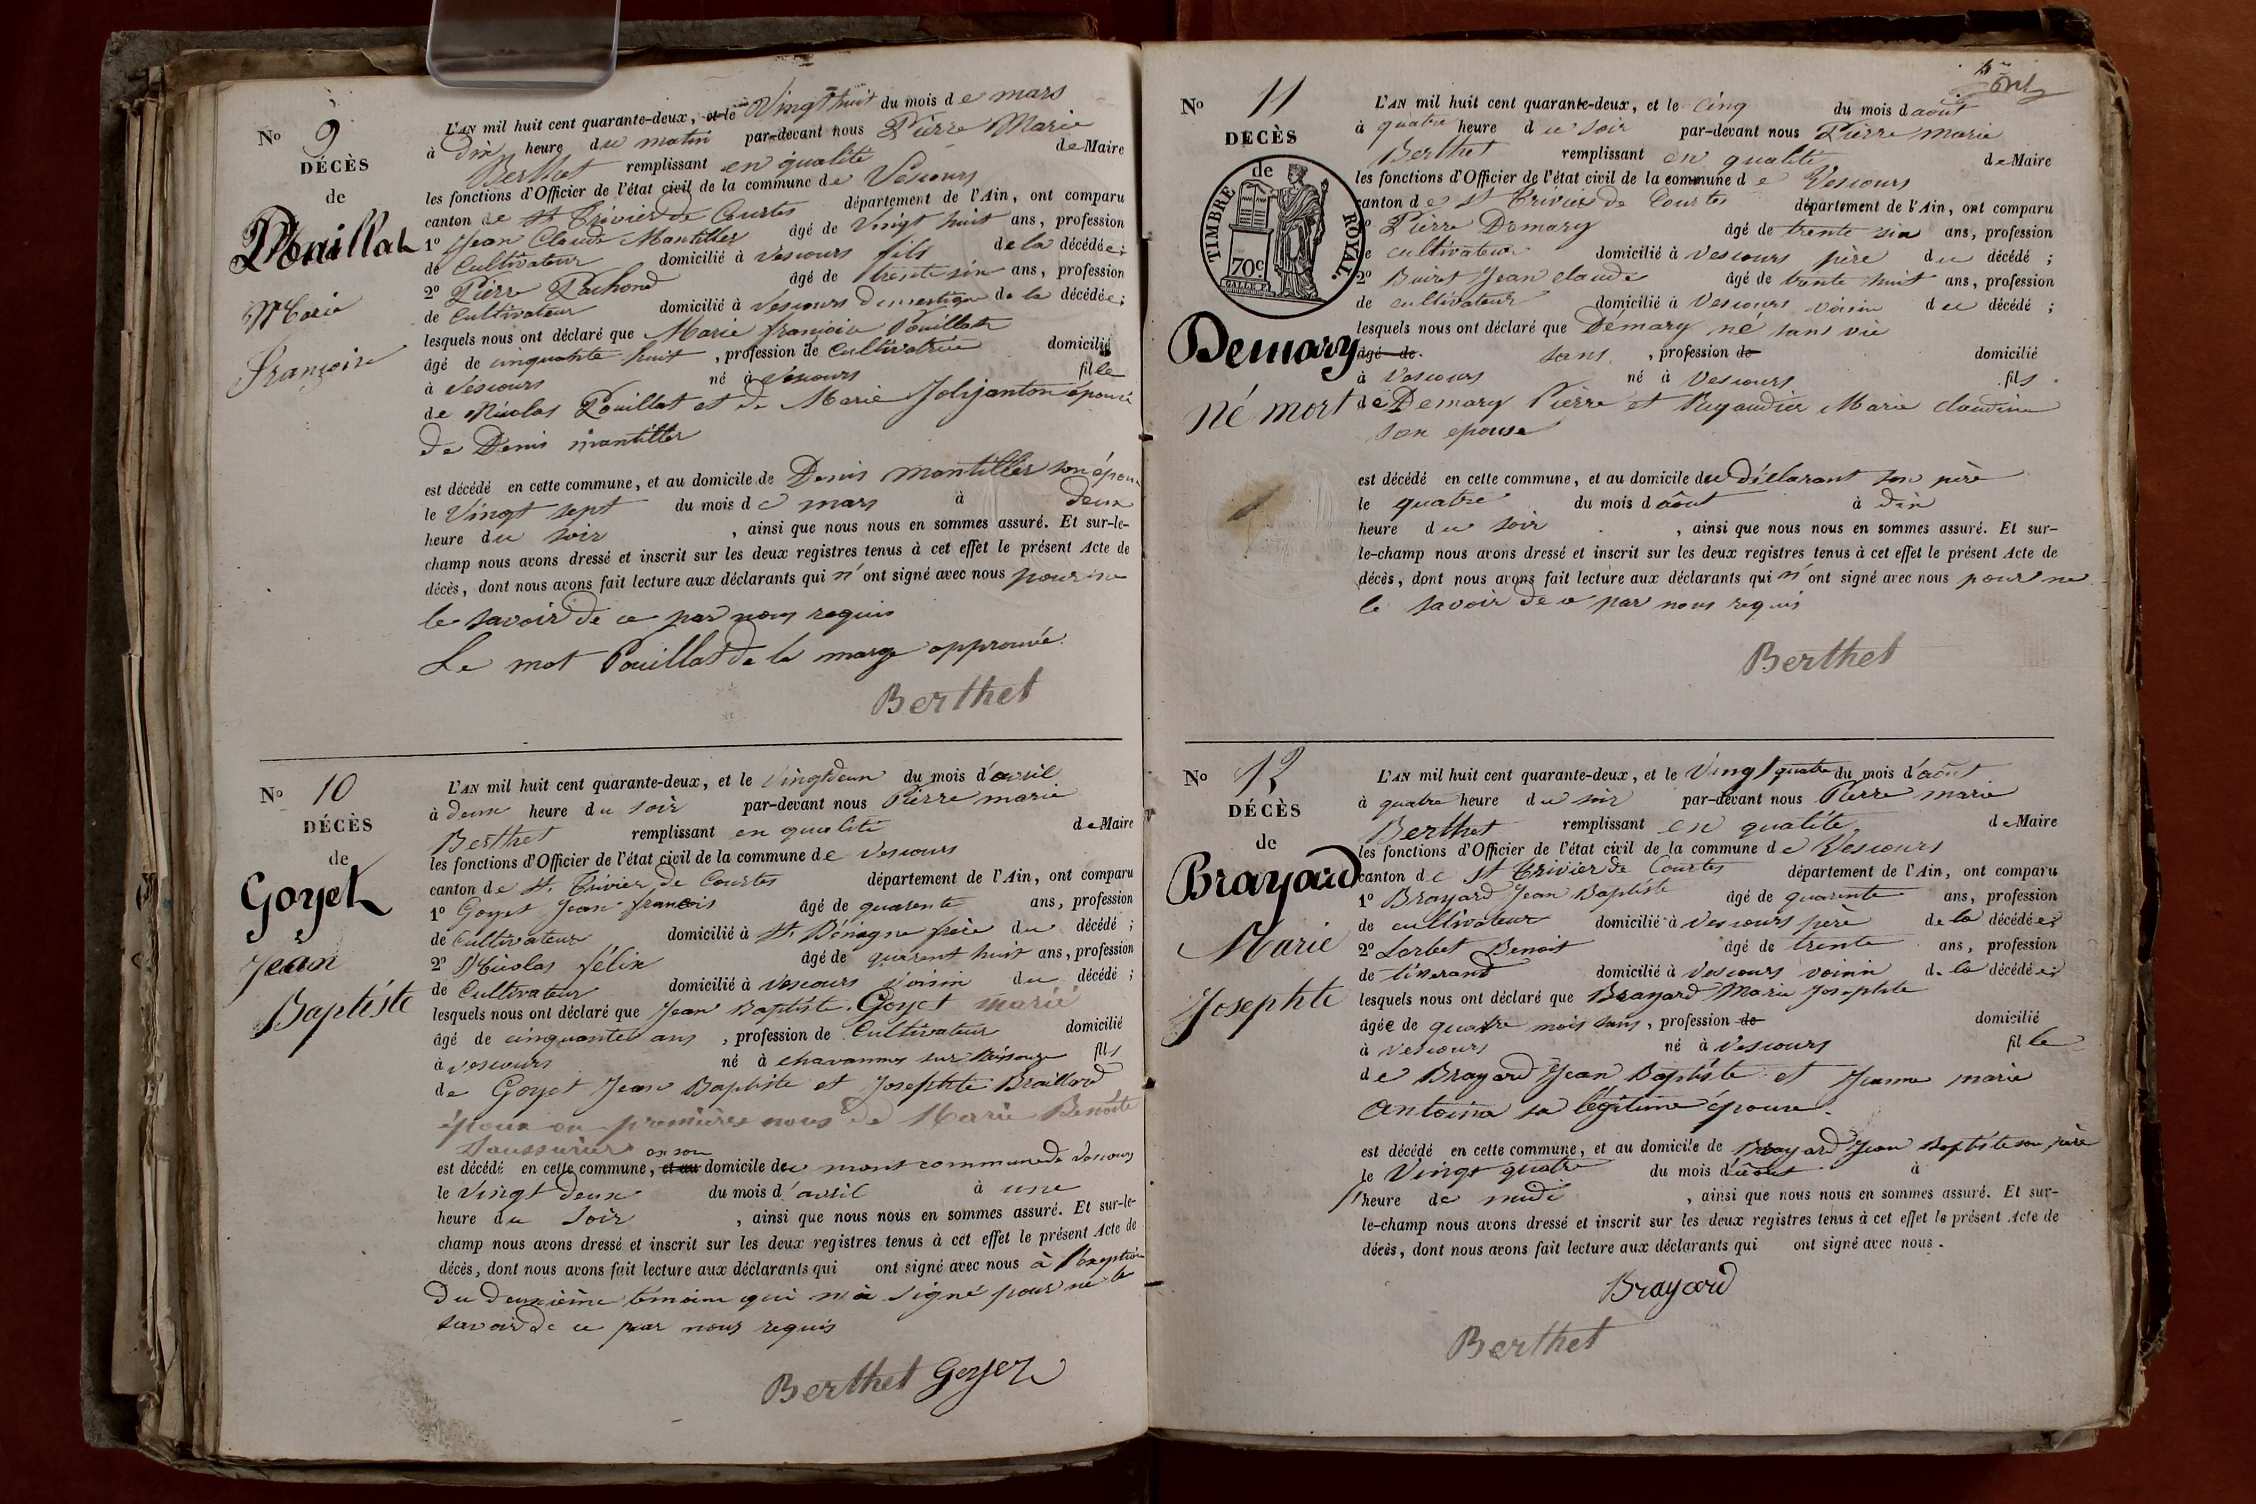 No 9
DÉCÈS
de
Pouillat
Marie
Françoise
L'AN mil huit cent quarante-deux, et le Vingt huit du mois de mars
à Dix heure du matin par-devant nous Pierre Marie
Berthet remplissant en qualité de Maire
les fonctions d'Officier de l'état civil de la commune de Vescours
canton de St Trivier de Courtes département de l'Ain, ont comparu
1o Jean Claude Mantillier âgé de Vingt huit ans, profession
de Cultivateur domicilié à Vescours fils de la décédée;
2o Pierre Pachoud âgé de trente six ans, profession
de Cultivateur domicilié à Vescours domestique de la décédée;
lesquels nous ont déclaré que Marie françoise Pouillat
âgé de cinquante huit, profession de Cultivatrice domicilié
à Vescours né à Vescours fille
de Nicolas Pouillat et de Marie Jolijanton épouse
de Denis mantiller
est décédé en cette commune, et au domicile de Denis mantillier son époux
le Vingt sept du mois de mars à deux
heure du soir, ainsi que nous nous en sommes assuré. Et sur-le-
champ nous avons dressé et inscrit sur les deux registres tenus à cet effet le présent Acte de
décès, dont nous avons fait lecture aux déclarants qui n'ont signé avec nous pour ne
le savoir de ce par nous requis
Le mot Pouillat de la marge approuvée.
Berthet
No 10
DÉCÈS
de
Goyet
Jean
Baptiste
L'AN mil huit cent quarante-deux, et le Vingt deux du mois d'avril
à deux heure du soir par-devant nous Pierre marie
Berthet remplissant en qualité de Maire
les fonctions d'Officier de l'état civil de la commune de Vescours
canton de St. Trivier de Courtes département de l'Ain, ont comparu
1o Goyet Jean françois âgé de quarente ans, profession
de Cultivateur domicilié à St. Bénagne frère du décédé;
2o Nicolas félix âgé de quarent huit ans, profession
de Cultivateur domicilié à Vescours Voisin du décédé;
lesquels nous ont déclaré que Jean Baptiste Goyet marié
âgé de cinquante ans, profession de Cultivateur domicilié
à Vescours né à chavannes sur Reissouze fils
de Goyet Jean Baptiste et Josephte Braillard
époux en premières noces de Marie Benoite
Saussurier en son
est décédé en cette commune, et au domicile du mont commune de Vescours
le Vingt deux du mois d'avril à une
heure du Soir, ainsi que nous nous en sommes assuré. Et sur-le-
champ nous avons dressé et inscrit sur les deux registres tenus à cet effet le présent Acte de
décès, dont nous avons fait lecture aux déclarants qui ont signé avec nous à l'exception
Du deuxième témoin qui n'a signé pour ne le
savoir de ce par nous requis
Berthet Goyet
No 11
DÉCÈS
de
TIMBRE ROYAL
70c
Demary
né mort
L'AN mil huit cent quarante-deux, et le cinq du mois d'août
à quatre heure du soir par-devant nous Pierre marie
Berthet remplissant en qualité de Maire
les fonctions d'Officier de l'état civil de la commune de Vescours
canton de St Trivier de Courtes département de l'Ain, ont comparu
1o Pierre Demary âgé de trente six ans, profession
de cultivateur domicilié à Vescours père du décédé;
2o Buiret Jean claude âgé de trente huit ans, profession
de cultivateur domicilié à Vescours voisin du décédé;
lesquels nous ont déclaré que Démary né sans vie
âgé de sans, profession de domicilié
à Vescours né à Vescours fils
de Demary Pierre et Marie claudine
son epouse
est décédé en cette commune, et au domicile du déclarant son père
le quatre du mois d'août à dix
heure du soir, ainsi que nous nous en sommes assuré. Et sur-
le-champ nous avons dressé et inscrit sur les deux registres tenus à cet effet le présent Acte de
décès, dont nous avons fait lecture aux déclarants qui n'ont signé avec nous pour ne
le savoir de ce par nous requis
Berthet
No 12
DÉCÈS
de
Brayard
Marie
Josephte
L'AN mil huit cent quarante-deux, et le Vingt quatre du mois d'août
à quatre heure du soir par-devant nous Pierre marie
Berthet remplissant en qualité de Maire
les fonctions d'Officier de l'état civil de la commune de Vescours
canton de St Trivier de Courtes département de l'Ain, ont comparu
1o Brayard Jean Baptiste âgé de quarente ans, profession
de cultivateur domicilié à Vescours père de la décédée;
2o Lorbet Benoit âgé de trente ans, profession
de tisserand domicilié à Vescours voisin de la décédée;
lesquels nous ont déclaré que Brayard Marie Josephte
âgée de quatre mois sans, profession de domicilié
à Vescours né à Vescours fille
de Brayard Jean Baptiste et Jeanne marie
Antoina sa légitime épouse.
est décédé en cette commune, et au domicile de Brayard Jean Baptiste son père
le Vingt quatre du mois d'août à
l'heure de midi, ainsi que nous nous en sommes assuré. Et sur-
le-champ nous avons dressé et inscrit sur les deux registres tenus à cet effet le présent Acte de
décès, dont nous avons fait lecture aux déclarants qui ont signé avec nous.
Brayard
Berthet